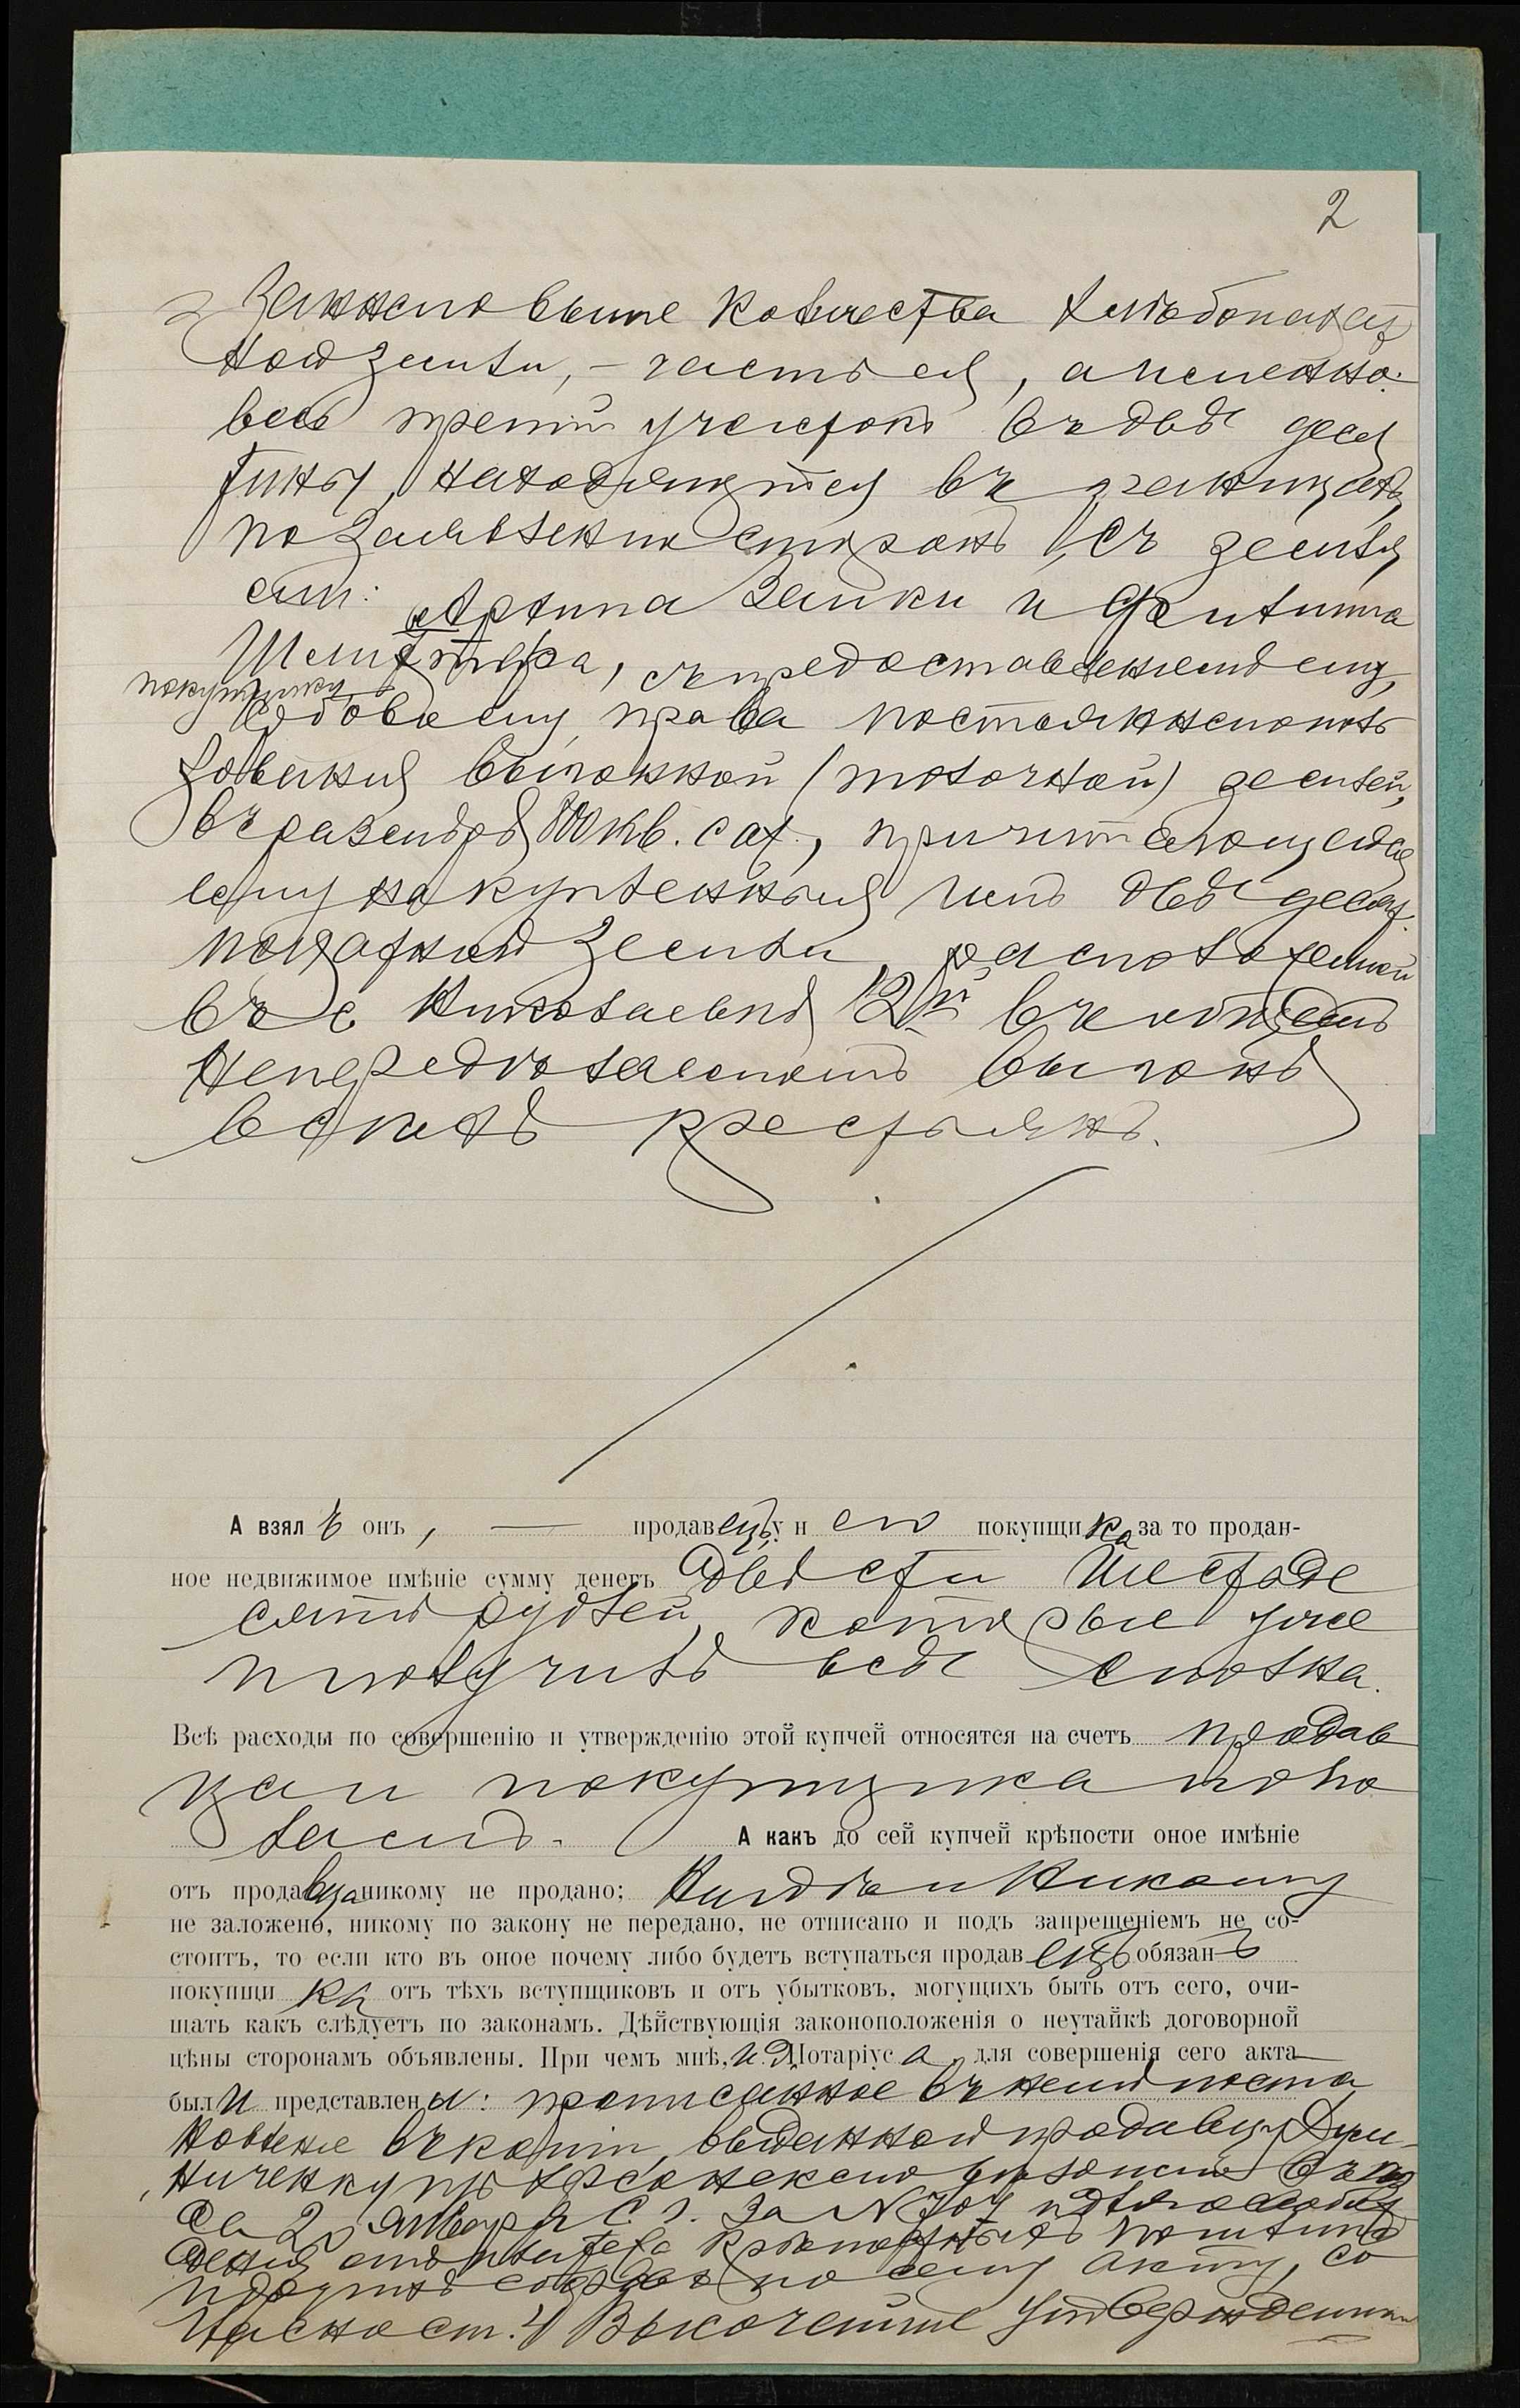 2
заннаго выше количества хлѣбопахат
ной земли, – часть ея, а именно:
весь третій участокъ въ двѣ деся
тины, находящійся въ границахъ,
по заявленію сторонъ, съ земля
ми: Архипа Заики и Филиппа
съ предоставленіемъ ему,
покупщику
права постояннаго поль
зованія выгонной (толочной) землей,
въ размѣрѣ 800 кв. саж., причитающейся
ему на купленныя имъ двѣ десят.
пахатной земли, расположенной
въ с. Николаевкѣ 2й въ общемъ
нераздѣльномъ выгонѣ
всѣхъ крестьянъ.
А взял ъ онъ, — продавецъ, у н его покупщи ка за то продан-
ное недвижимое имѣніе сумму денегъ двѣсти шестьде
сятъ рублей, которые уже
и получилъ всѣ сполна.
Всѣ расходы по совершенію и утвержденію этой купчей относятся на счетъ продав
ца и покупщика попо
ламъ. А какъ до сей купчей крѣпости оное имѣніе
отъ продавца никому не продано; нигдѣ и никому
не заложено, никому по закону не передано, не отписано и подъ запрещеніемъ не со-
стоитъ, то если кто въ оное почему либо будетъ вступаться продав ецъ обязан ъ
покупщи ка отъ тѣхъ вступщиковъ и отъ убытковъ, могущихъ быть отъ сего, очи-
щать какъ слѣдуетъ по законамъ. Дѣйствующія законоположенія о неутайкѣ договорной
цѣны сторонамъ объявлены. При чемъ мнѣ, И. Д. Нотаріус а, для совершенія сего акта
был и представлен ы: прописанное въ немъ поста
новленіе въ копіи, выданной продавцу
Херсонскаго
20 января с. г. за №
крѣпостныхъ пошлинъ
по сему акту, со
гласно ст. 4 Высочайше утвержденныхъ